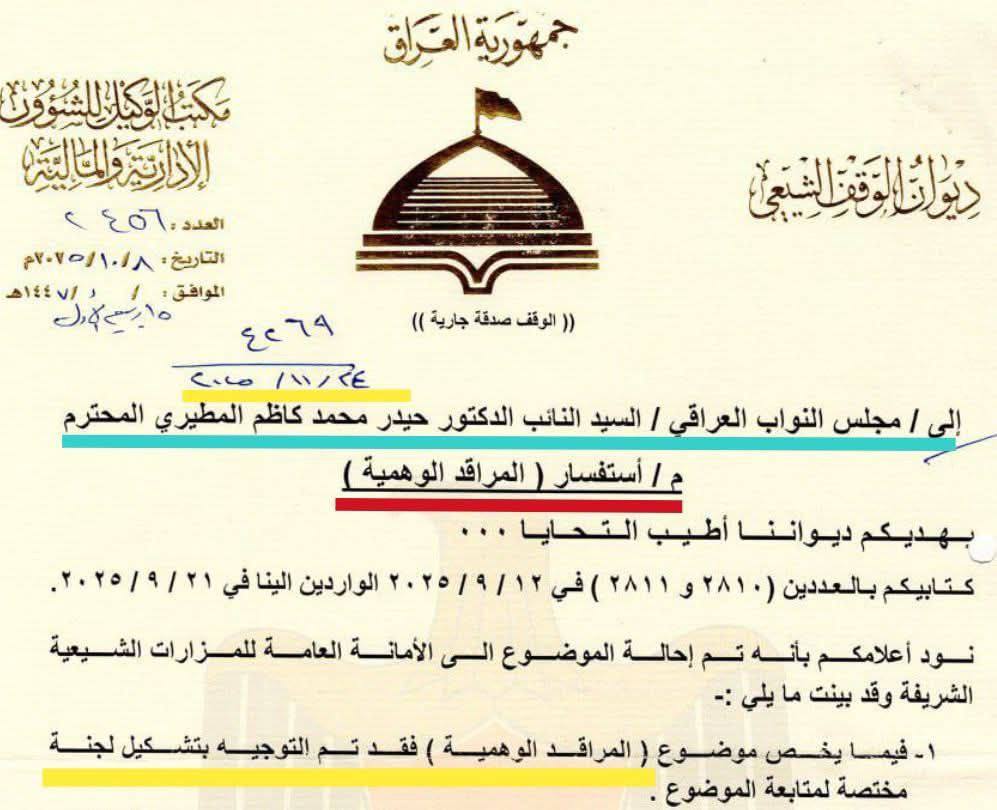 جمهورية العراق
ديوان الوقف الشيعي
مكتب الوكيل للشؤون
الإدارية والمالية
العدد : ٢٤٥٦
التاريخ : ٢٠٢٥/١٠/٨م
الموافق : / / ١٤٤٧هـ
١٥ ربيع الأول
(( الوقف صدقة جارية ))
٤٢٦٩
٢٠٢٥/١١/٢٤
إلى / مجلس النواب العراقي / السيد النائب الدكتور حيدر محمد كاظم المطيري المحترم
م / أستفسار ( المراقد الوهمية )
يهديكم ديواننا أطيب التحايا ...
كتابيكم بالعددين (٢٨١٠ و ٢٨١١ ) في ١٢ / ٩ / ٢٠٢٥ الواردين الينا في ٢١ / ٩ / ٢٠٢٥.
نود أعلامكم بأنه تم إحالة الموضوع الى الأمانة العامة للمزارات الشيعية
الشريفة وقد بينت ما يلي :-
١- فيما يخص موضوع ( المراقد الوهمية ) فقد تم التوجيه بتشكيل لجنة
مختصة لمتابعة الموضوع .